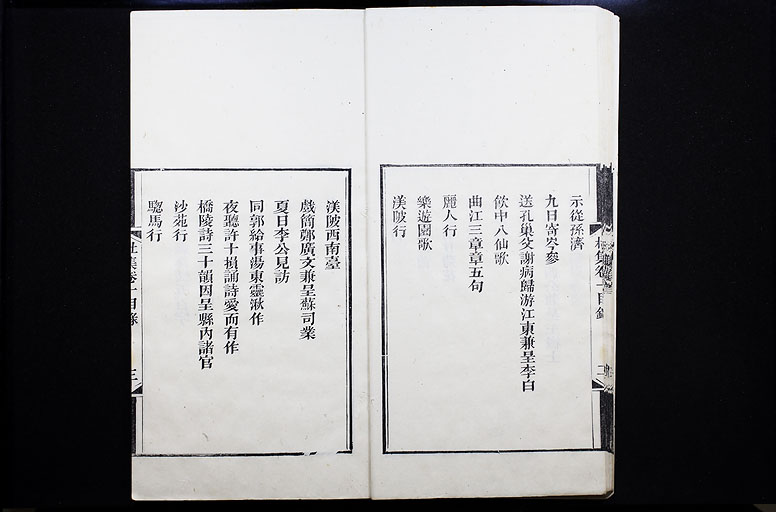 示從孫濟
九日寄岑參
送孔巢父謝病歸游江東兼呈李白
飲中八仙歌
曲江三章章五句
麗人行
樂遊園歌
渼陂行
渼陂西南臺
戲簡鄭廣文兼呈蘇司業
夏日李公見訪
同郭給事湯東靈湫作
夜聽許十損誦詩愛而有作
橋陵詩三十韻因呈縣內諸官
沙苑行
驄馬行
杜集卷一目錄
三